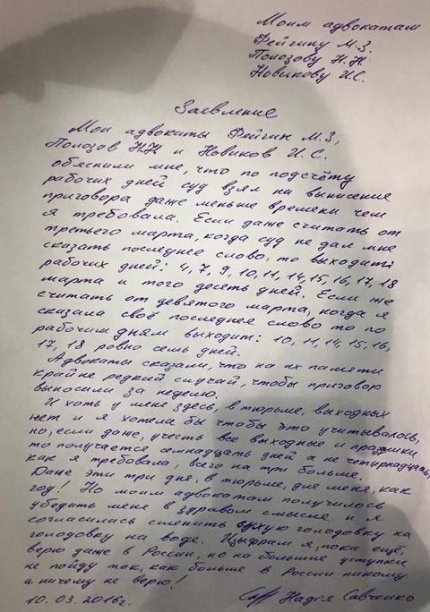 Моим адвокатам
Фейгину М.З.
Полозову Н.Н.
Новикову И.С.
Заявление
Мои адвокаты Фейгин М.З,
Полозов Н.Н и Новиков И.С.
обяснили мне, что по подсчёту
рабочих дней суд взял на вынисение
приговора даже меньше времени чем
я требовала. Если даже считать от
третьего марта, когда суд не дал мне
сказать последнее слово, то выходит
рабочих дней: 4, 7, 9, 10, 11, 14, 15, 16, 17, 18
марта и того десеть дней. Если же
считать от девятого марта, когда я
сказала своё последнее слово то по
рабочим дням выходит: 10, 11, 14, 15, 16,
17, 18 ровно семь дней.
Адвокаты сказали, что на их памяти
крайне редкий случай, чтобы приговор
выносили за неделю.
И хоть у меня здесь, в тюрьме, выходных
нет и я хотела бы чтобы это учитывалось,
но, если даже, учесть все выходные и празники,
то получается семнадцать дней а не четырнадцать,
как я требовала, всего на три больше.
Даже эти три дня, в тюрьме, для меня, как
год! Но моим адвокатам получилось
убедить меня в здравом смысле и я
согласилась сменить сухую голодовку на
голодовку на воде. Цыфрам я, пока ещё,
верю даже в России, но на большие уступки
не пойду так, как больше в России никому
и ничему не верю!
10.03.2016г. Надія Савченко